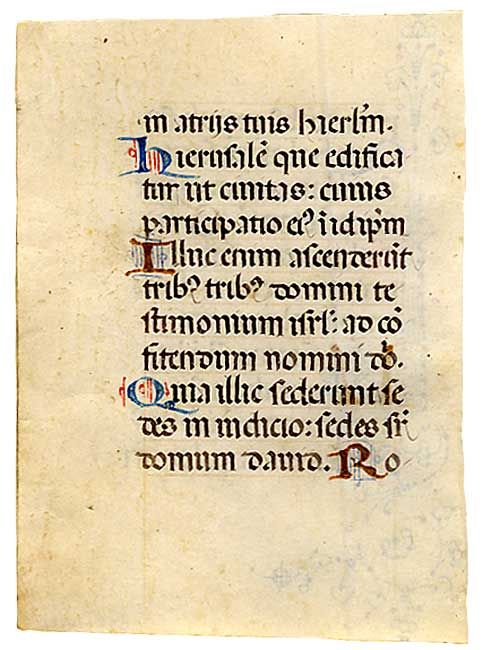 in atrijs tuis hierl̄m.
Hierusalē que edifica
tur ut ciuitas: cuius
participatio eiꝰ ī idip̄m
Illuc enim ascenderūt
tribꝰ tribꝰ domini te
stimonium isrl̄: ad cō
fitendum nomini tuo.
Quia illic sederunt se
des in iudicio: sedes sr̄
domum dauid. Ro